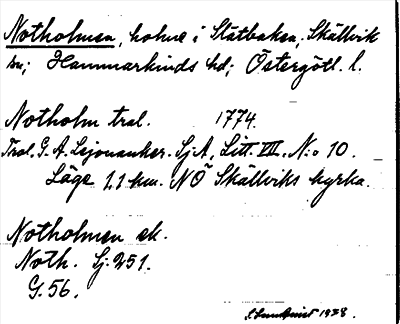 Notholmen, holme i Slätbaken, Skällvik
sn; Hammarkinds hd; Östergötl. l.
Notholm tral. 1774.
Tral. G. A. Lejonanker. Sj A, Litt. VIII. N:o 10.
Läge 1.1 km. NÖ Skällviks kyrka.
Notholmen ek.
Noth. Sj. 251.
G. 56.
1928.